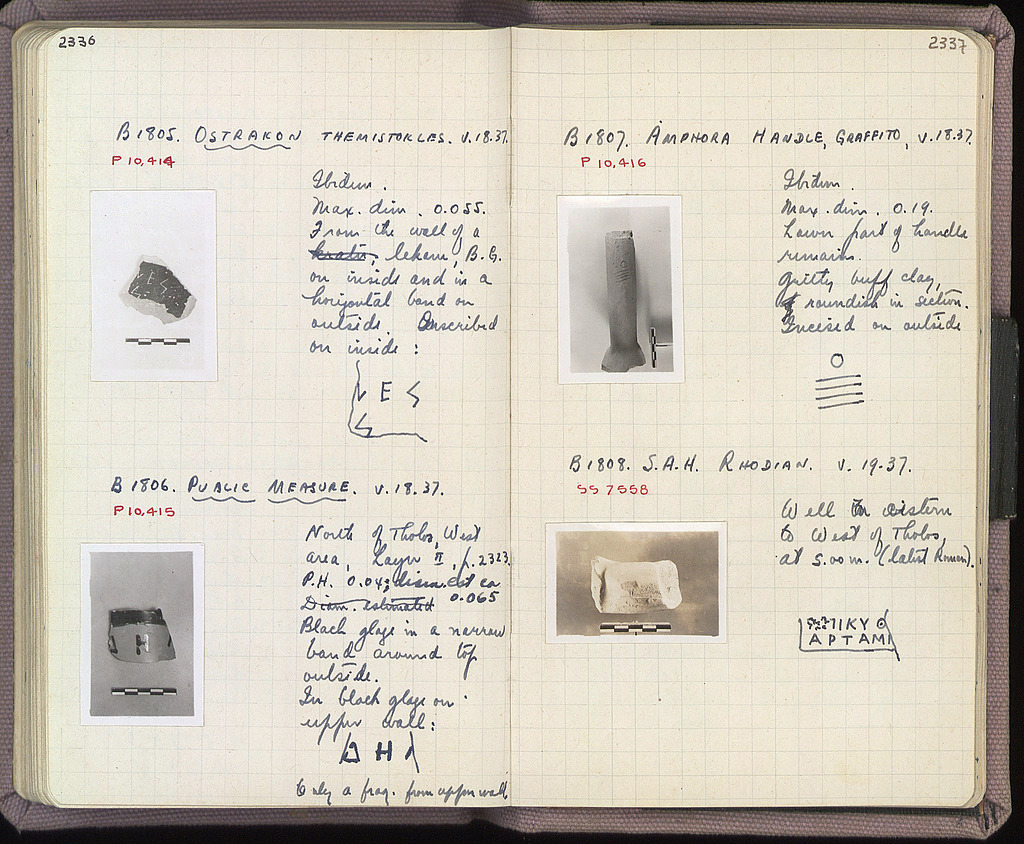 2336
B 1805. OSTRAKON THEMISTOKLES. V.18.37.
P 10,414
Ibidem.
Max. dim. 0.055.
From the wall of a
krater, lekane, B.G.
on inside and in a
horizontal band on
outside. Inscribed
on inside :
Ε Σ
Σ
B 1806. PUBLIC MEASURE. V.18.37.
P 10,415
North of Tholos, West
area, Layer II, p. 2323.
P.H. 0.04; diam. est ca
Diam. estimated 0.065
Black glaze in a narrow
band around top
outside.
In black glaze on
upper wall:
Η
Only a frag. from upper wall
2337
B 1807. AMPHORA HANDLE, GRAFFITO, V.18.37.
P 10,416
Ibidem.
Max. dim. 0.19.
Lower part of handle
remains.
Gritty buff clay,
roundish in section.
Incised on outside
B 1808. S.A.H. RHODIAN. V. 19.37.
SS 7558
Well in cistern
to West of Tholos,
at 5.00 m. (latest Roman).
ΙΚΥ
ΑΡΤΑΜΙ